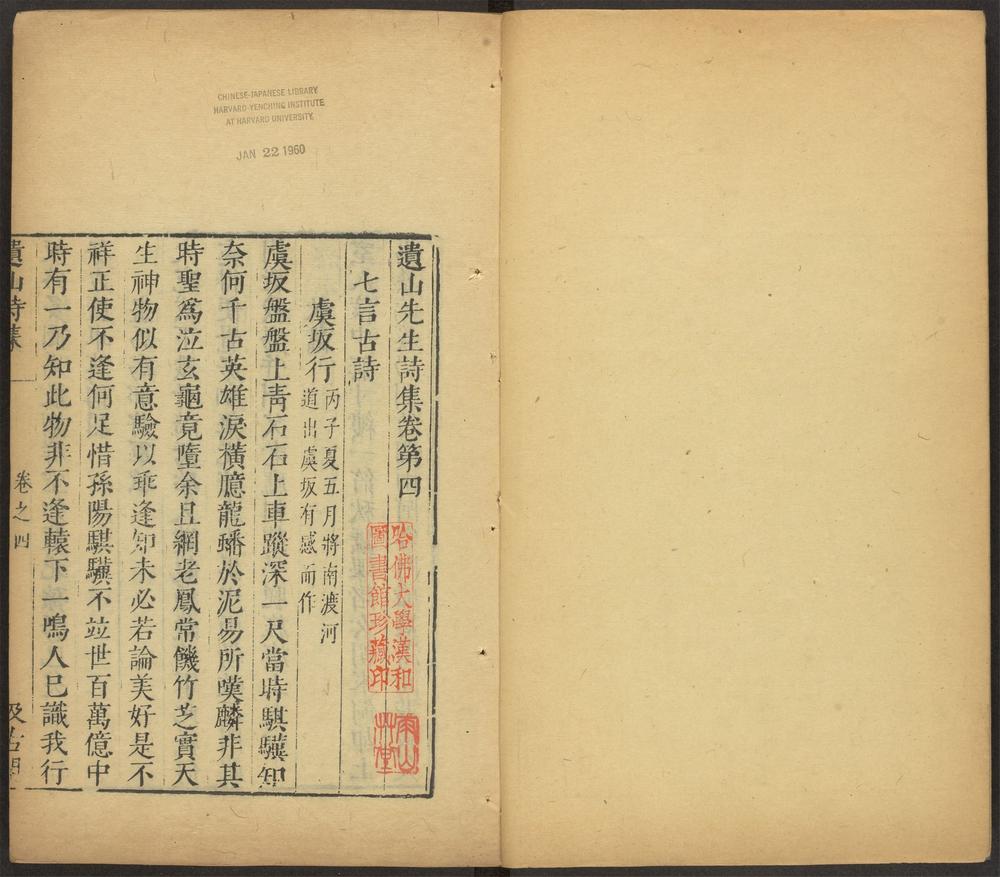 CHINESE-JAPANESE LIBRARY
HARVARD-YENCHING INSTITUTE
AT HARVARD UNIVERSITY
JAN 22 1960
遺山先生詩集卷第四
七言古詩
虞坂行
丙子夏五月將南渡河
道出虞坂有感而作
虞坂盤盤上青石石上車蹤深一尺當時騏驥知
奈何千古英雄淚橫臆龍蟠於泥易所嘆麟非其
時聖爲泣玄龜竟墮余且網老鳳常饑竹芝實天
生神物似有意驗以乖逢知未必若論美好是不
祥正使不逢何足惜孫陽騏驥不並世百萬億中
時有一乃知此物非不逢轅下一鳴人已識我行
遺山詩集
卷之四
汲古閣
哈佛大學漢和
圖書館珍藏印